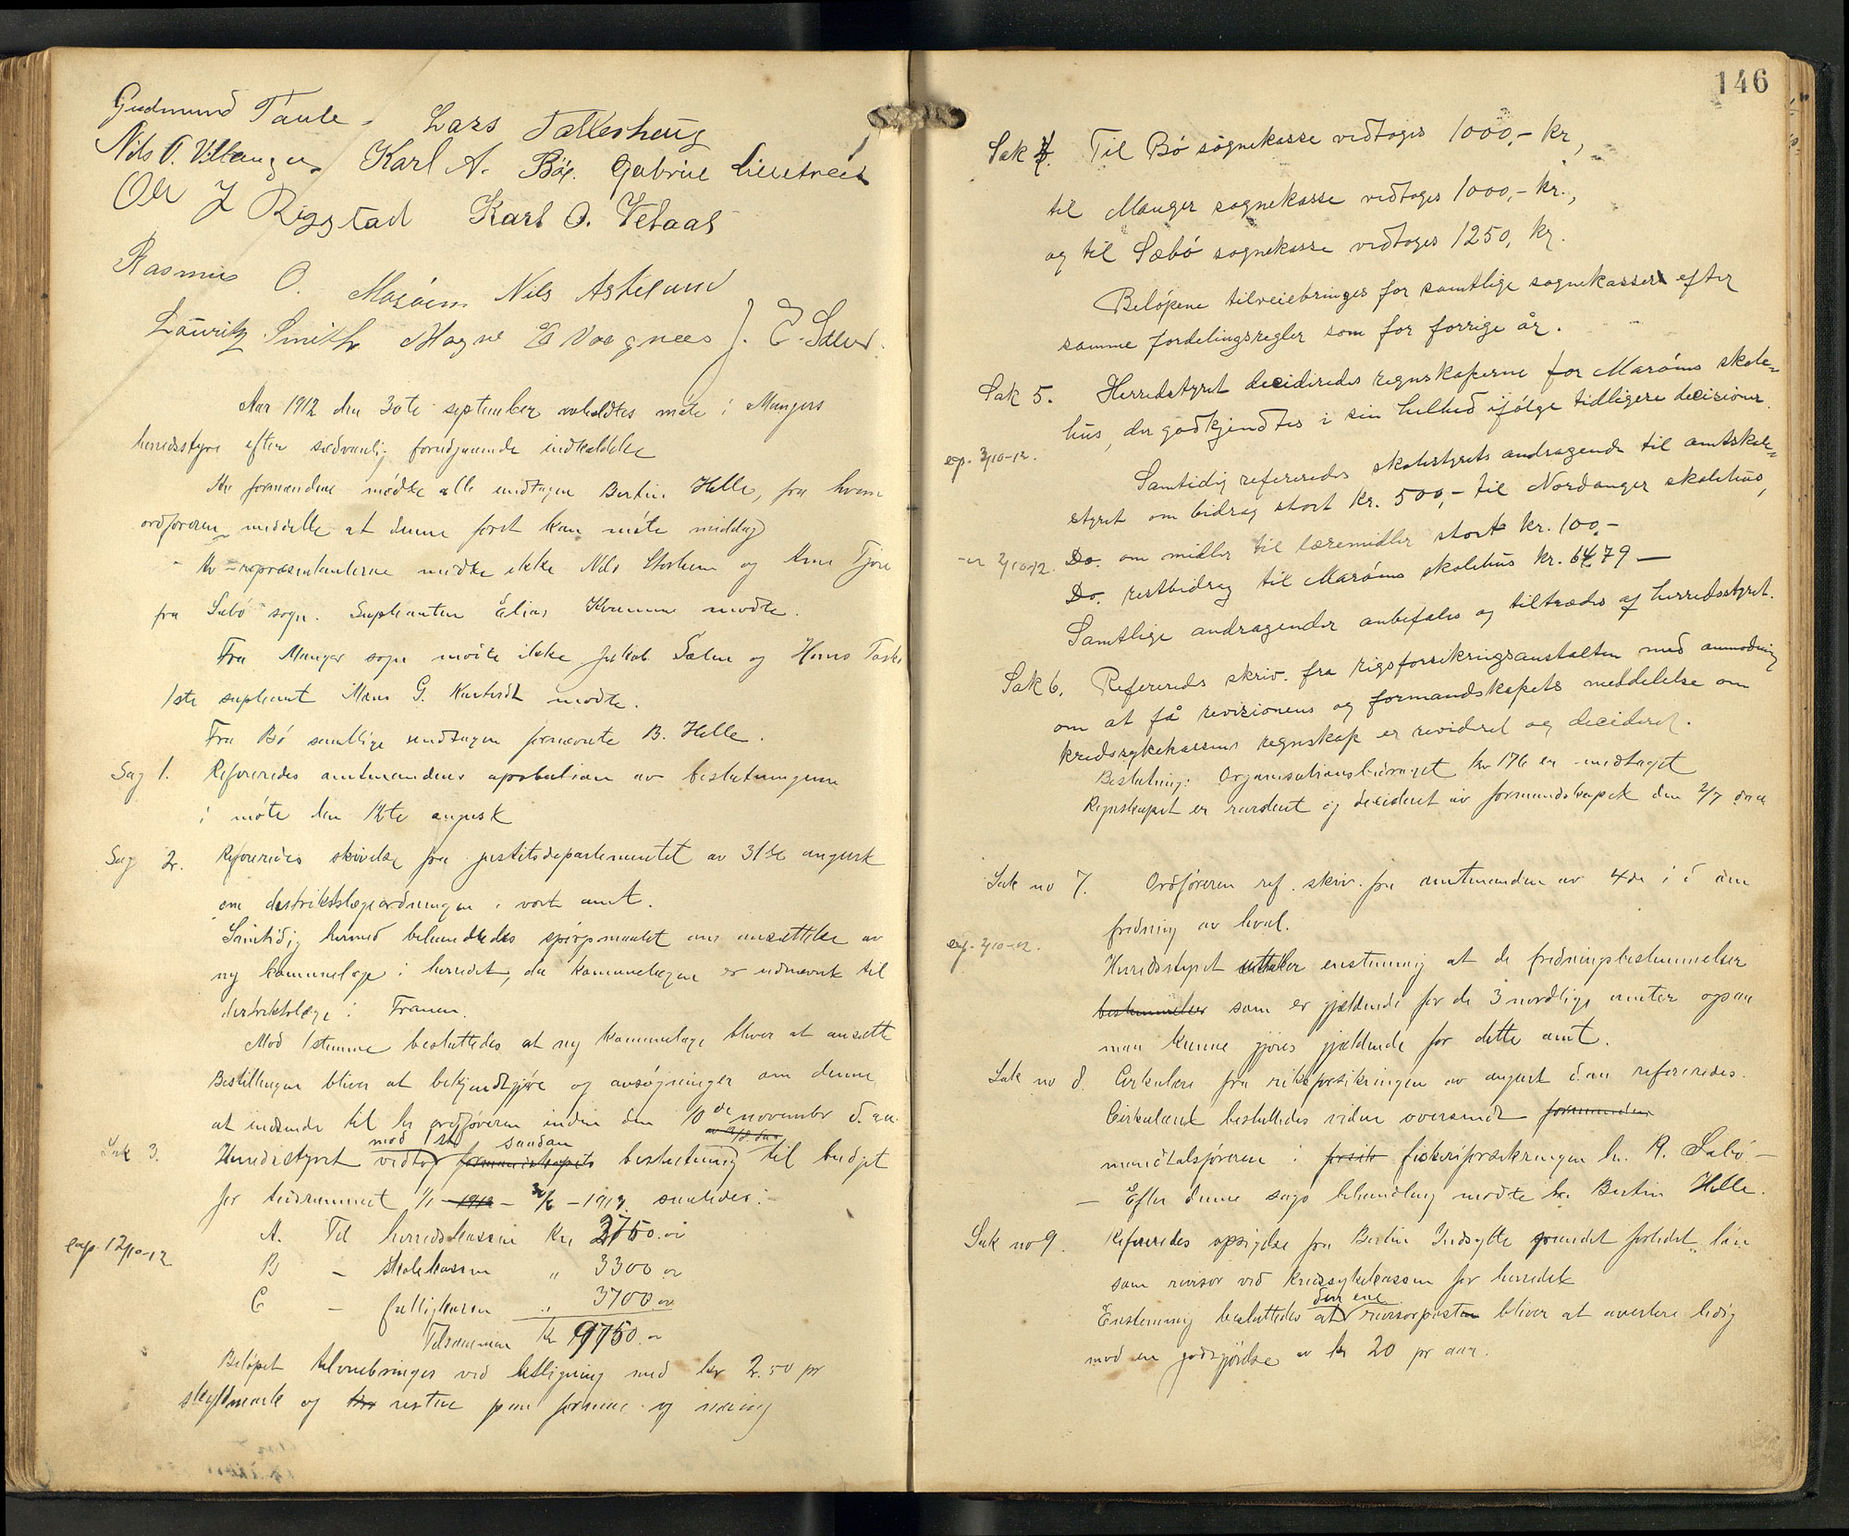 Gudmund Taule. Lars Takkeshaug
Nils O. Villanger. Karl A. Bøe. Gabriel
Ole J Rigstad Karl O. Vetaas
Rasmus O. Marøen Nils Askelund
Lauritz Smith Magne E Vaagenes J. E. Sæbø.
Aar 1912 den 30te september avholdtes møte i Mangers
herredsstyre efter sædvanlig forudgaaende indkaldelse
Av formændene mødte alle undtagen Bertin Helle, fra hvem
ordføreren meddelte at denne først kan møte middag
Av repræsentanterne mødte ikke Nils Storheim og Arne
fra Sæbø sogn. Suplianten Elias Kvamme mødte.
Fra Manger sogn møtte ikke Jakob Sælen og Hans
1ste supleant Mons G. mødte.
Fra Bø samtlige undtagen fornævnte B. Helle.
Sag 1. Refereredes amtmandens aprobation av beslutningerne
i møte den 12te august
Sag 2. Refereredes skrivelse fra justitsdepartementet av 31te august
om distriktslægeordningen i vort amt.
Samtidig hermed behandledes spørgsmaalet om ansættelse av
ny kommunelæge i herredet, da kommunelægen er utnævnt til
distriktslæge i Frænen.
Mod 1 stemme besluttedes at ny kommunelæge bliver at ansætte
Bestillingen bliver at bekjendtgjøre og ansøgninger om denne
at indsende til hr ordføreren inden den 10de november d. aa.
Sak 3. Herredsstyret vedtog mod 1 st saadan formandskapets beslutning til budget
for tidsrummet 1/1 - 1913 - 30/6 - 1913 saaledes:
exp. 12/10-12
A. Til herredskassen Kr 2750.00
B — skolekassen " 3300 00
C — fattigkassen " 3700 00
Tilsammen kr 9750.00
Beløpet tilveiebringes ved utligning med kr 2.50 pr
skyldmark og resten paa formue og næring
146
Sak 4. Til Bø sognekasse vedtoges 1000,- kr,
til Manger sognekasse vedtoges 1000,- kr.,
og til Sæbø sognekasse vedtoges 1250, kr.
Beløpene tilveiebringes for samtlige sognekasser efter
samme fordelingsregler som for forrige år.
Sak 5. Herredstyret desiderede regnskaperne for Marøens skole-
hus, der godkjendtes i sin helhed ifølge tidligere decisioner.
exp. 3/10-12.
Samtidig refereredes skolestyrets andragende til amtskole-
styret om bidrag stort kr. 500,- til Nordanger skolehus,
Do. om midler til læremidler stort kr. 100.-
2/10-12.
Do. restbidrag til Marøens skolehus kr. 64,79 —
Samtlige andragender anbefales og tiltrædes af herredsstyret.
Sak 6. Refereredes skriv. fra rigsforsikringsanstalten med anmodning
om at få revisionens og formandskapets meddelelse om
kredssykekassens regnskap er revideret og decideret.
Beslutning: Organisationsbidraget kr 176 er mottaget
Regnskapet er revideret og decideret av formandskapet den 2/7 d aa
Sak no 7. Ordføreren ref. skriv. fra amtmanden av 4de i d om
fredning av hval.
exp. 3/10-12.
Herredsstyret uttaler enstemmig at de fredningsbestemmelser
bestemmelser som er gjældende for de 3 nordlige amter ogsaa
maa kunne gjøres gjældende for dette amt.
Sak no 8. Cirkulære fra riksforsikringen av august d. aa refereredes.
Cirkulæret besluttedes videre oversendt formanden
mandtalsføreren i fiskeriforsikringen hr. R. Sæbø —
— Efter denne sags behandling mødte hr. Bertin Helle.
Sak no 9. Refereredes opsigelse fra Bertin Indsytte grundet forledet løn
som revisor ved kredssykekassen for herredet
Enstemmig besluttedes at den ene revisorposten bliver at avertere ledig
mod en godtgjørelse av kr 20 pr aar.